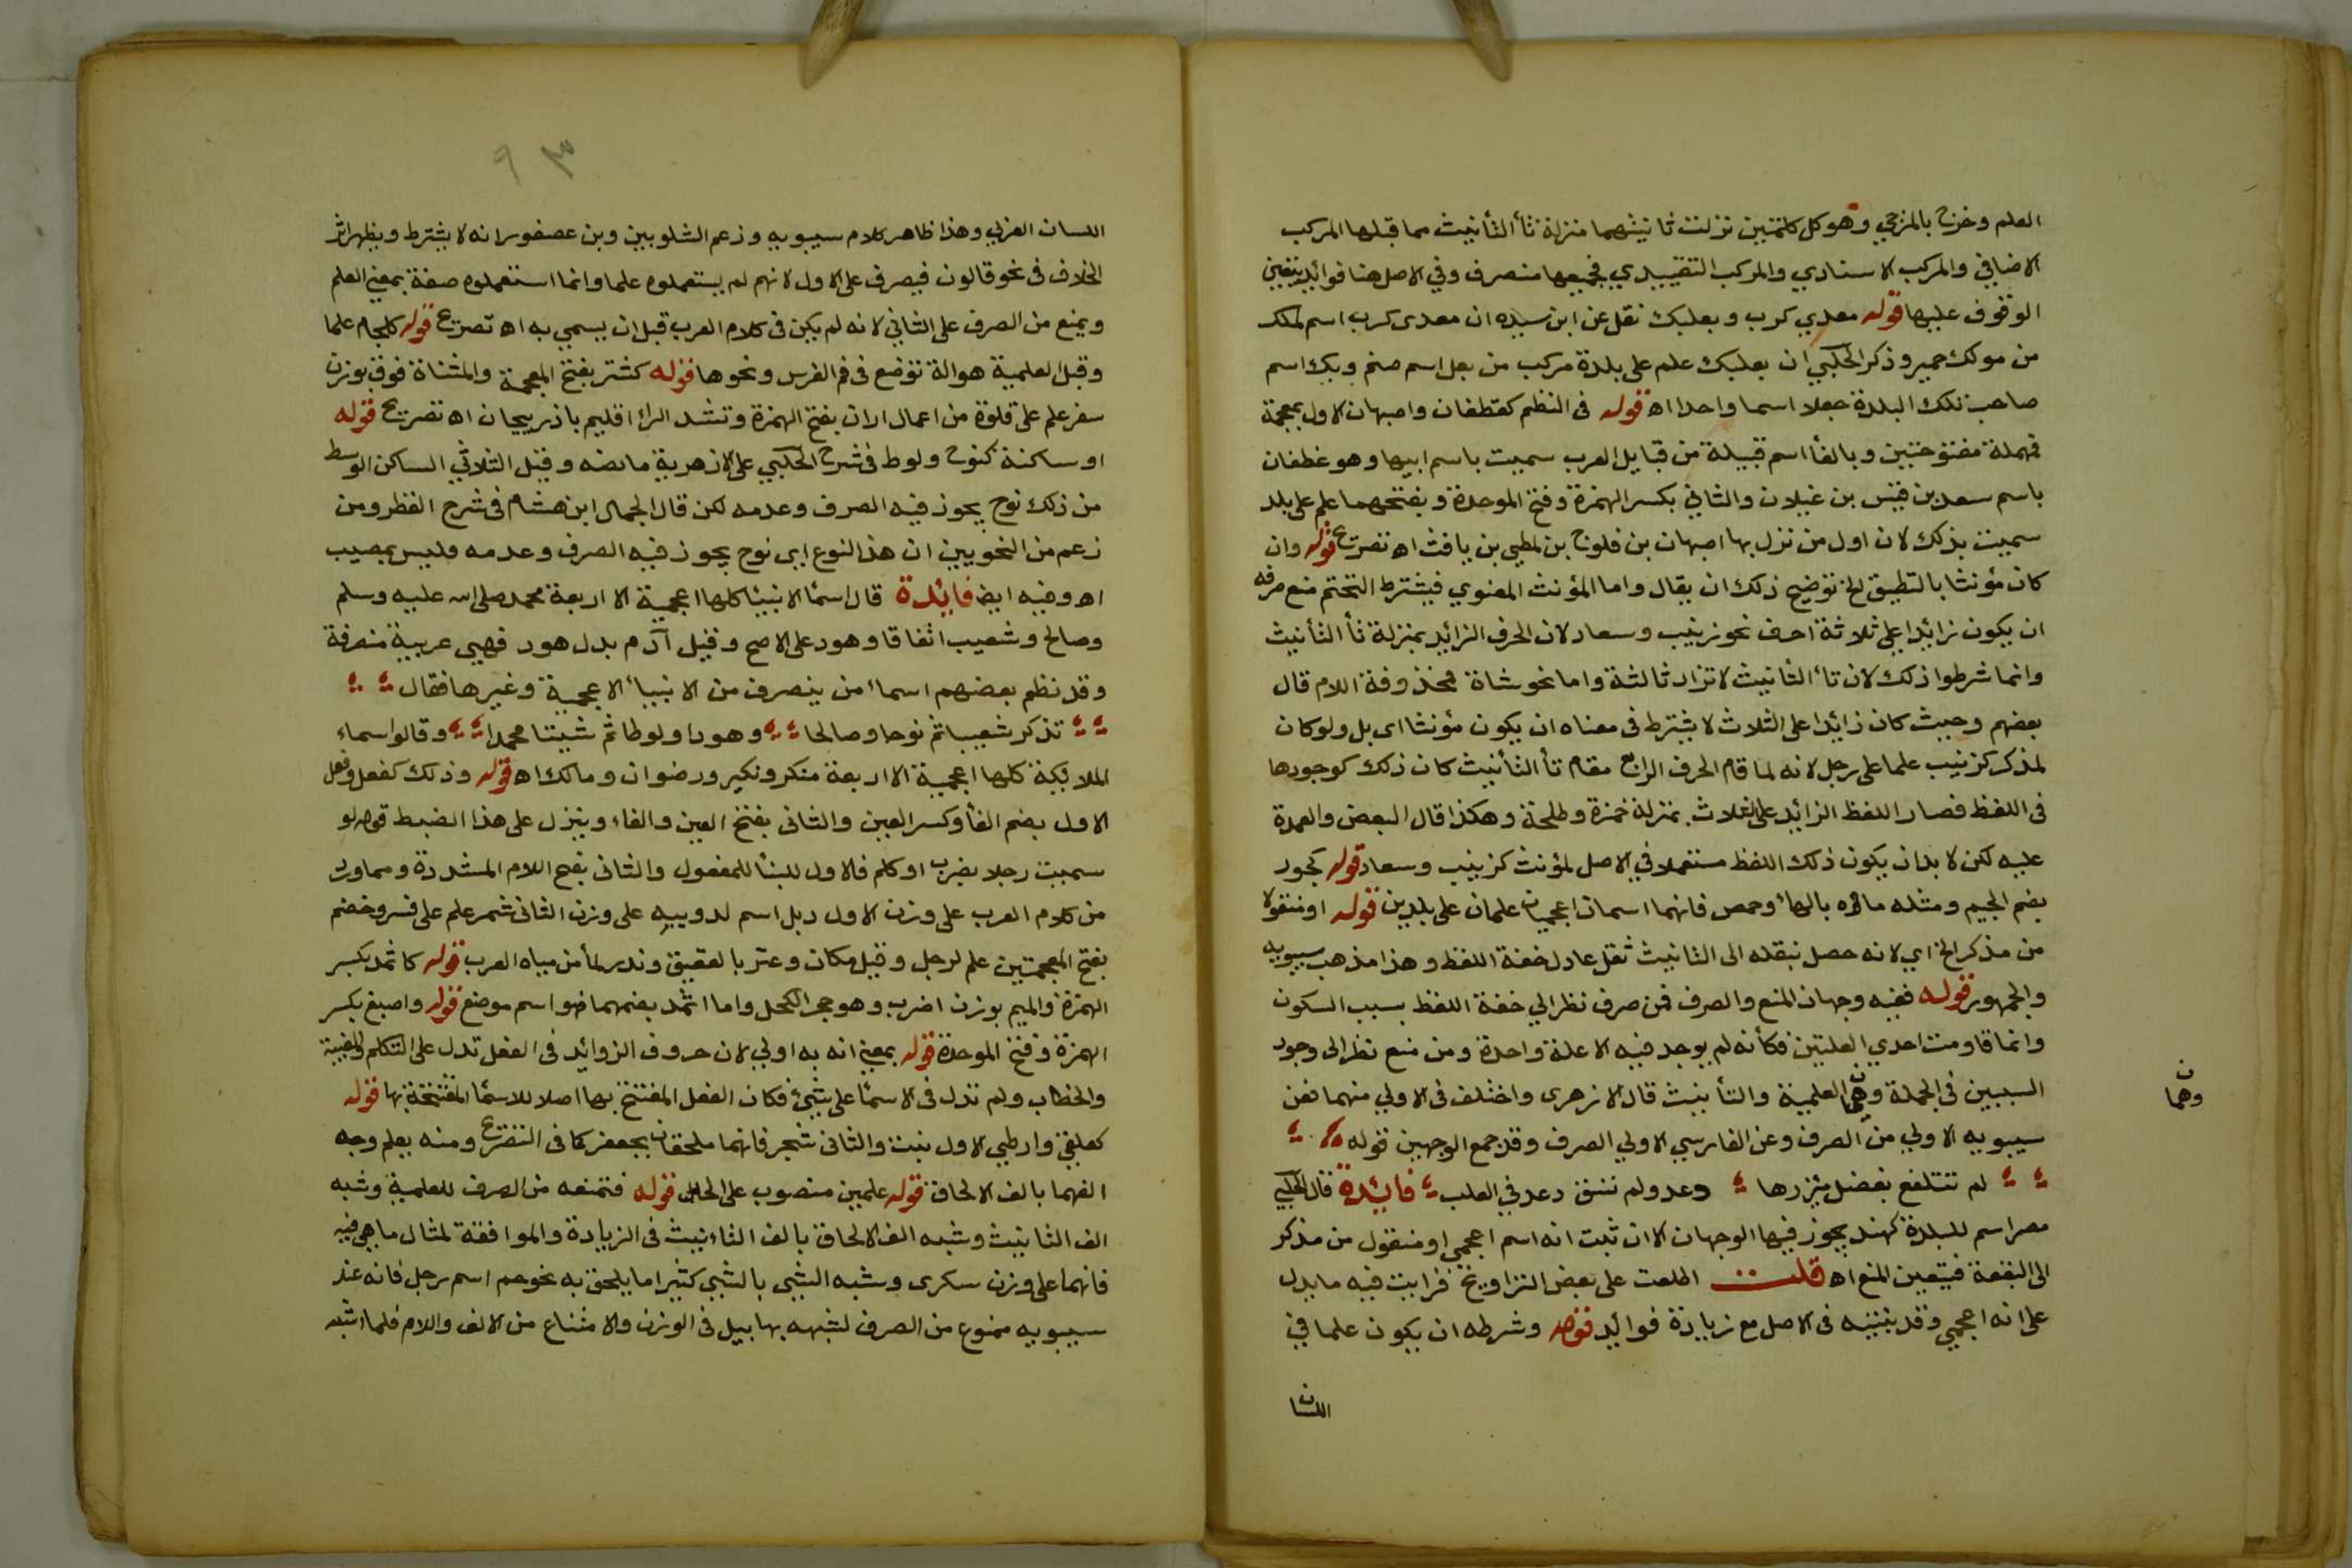 العلم وخرج بالمزجي وهو كل كلمتين نزلت ثانيتهما منزلة تأ التأنيث مما قبلها المركب
الاضافي والمركب الاسنادي والمركب التقييدي فجميعها منصرف وفي الاصل هنا فوائد يتعين
الوقوف عليها قوله معدي كرب وبعلبك نقل عن ابن سيده ان معدي كرب اسم لملك
من مولك حمير وذكر الحلبي ان بعلبك علم على بلدة مركب من بعل اسم صنم وبك اسم
صاحب تلك البلدة جعلا اسما واحدا اه قوله في النظم كغطفان واصبهان الاول بمعجمة
فمهملة مفتوحتين وبالفأ اسم قبيلة من قبايل العرب سميت باسم ابيها وهو غطفان
باسم سعد بن قيس بن غيلان والثاني بكسر الهمزة وفتح الموحدة وبفتحهما علم على بلد
سميت بذلك لان اول من نزل بها اصبهان بن فلوح بن لمطي بن يافث اه تصريح قوله وان
كان مؤنثا بالتطبيق لخ توضيح ذلك ان يقال واما المؤنث المعنوي فيشترط التحتم منع صرفه
ان يكون زائدا على ثلاثة احف نحو زينب وسعاد لان الحرف الزائد بمنزلة تأ التأنيث
وانما شرطوا ذلك لان تاء التأنيث لا تزاد ثالثة واما نحو شاة فمحذوفة اللام قال
بعضهم وحيث كان زائدا على الثلاث لا يشترط في معناه ان يكون مؤنثا اي بل ولو كان
لمذكر كزينب علما على رجل لانه لما قام الحرف الرابع مقام تأ التأنيث كان ذلك كوجودها
في اللفظ فصار اللفظ الزائد على الثلاث بمنزلة حمزة وطلحة وهكذا قال البعض والعمدة
عليه لكن لا بد ان يكون ذلك اللفظ مستعملا في الاصل لمؤنث كزينب وسعاد قوله كجور
بضم الجيم ومثله ماه بالهاء وحمص فانهما اسمان اعجميان علمان على بلدين قوله او منقولا
من مذكر الخ اي لانه حصل بنقله الى التانيث ثقل عادل خفة اللفظ وهذا مذهب سيبويه
والجمهور قوله ففيه وجهان المنع والصرف فمن صرف نظر الي خفة اللفظ بسبب السكون
وانما قاومت احدي العلتين فكأنه لم يوجد فيه الا علة واحدة ومن منع نظر الى وجود
السببين في الجملة وهي العلمية والتأنيث قال الازهرى واختلف في الاولي منهما فعن
وهما ن
سيبويه الاولي من الصرف وعن الفارسي الاولي الصرف وقد جمع الوجهين قوله
لم تتلفع بفضل مئزرها دعد ولم تسق دعد في العلب فائدة قال الحلبي
مصر اسم للبلدة كهند يجوز فيها الوجهان الا ان ثبت انه اسم اعجمي او منقول من مذكر
الى البقعة فيتعين المنع اه قلت اطلعت على بعض التزاويخ فرايت فيه ما يدل
على انه اعجمي وقد بينته في الاصل مع زيادة فوائد قوله وشرطه ان يكون علما في
اللسان
٩
اللسان العربي وهذا ظاهر كلام سيبويه وزعم الشلوبين وبن عصفور انه لا يشترط ويظهر اثر
الخلاف في نحو قالون فيصرف على الاول لانهم لم يستعملوه علما وانما استعملوه صفة بمعني العلم
ويمنع من الصرف على الثاني لانه لم يكن في كلام العرب قبل ان يسمي به اه تصريح قوله كلجام علما
وقبل العلمية هو الة توضع في فم الفرس ونحوها قوله كشتر بفتح المعجمة والمثناة فوق بوزن
سفر علم على قلوة من اعمال اران بفتح الهمزة وتشد الرا اقليم باذربيجان اه تصريح قوله
او ساكنة كنوح ولوط في شرح الحلبي على الازهرية ما نصه وقيل الثلاثي الساكن الوسط
من ذلك نوح يجوز فيه الصرف وعدمه لكن قال الجمال ابن هشام في شرح القطر ومن
زعم من النحويين ان هذا النوع اي نوح يجوز فيه الصرف وعدمه فليس بمصيب
اه وفيه ايضا فائدة قال اسمأ الانبيا كلها اعجمية الا اربعة محمد صلى الله عليه وسلم
وصالح وشعيب اتفاقا وهود على الاصح وقيل آدم بدل هود فهي عربية منصرفة
وقد نظم بعضهم اسماء من ينصرف من الانبياء الاعجمية وغيرها فقال
تذكر شعيبا ثم نوحا وصالحا وهودا ولوطا ثم شيتا محمدا وقالوا اسماء
الملائكة كلها اعجمية الا اربعة منكر ونكير ورضوان ومالك اه قوله وذلك كفعل وفعل
الاول بضم الفأ وكسر العين والثاني بفتح العين والفاء ويتنزل على هذا الضبط قوله لو
سميت رجلا بضرب او كلم فالاول للبنأ للمفعول والثاني بفتح اللام المشددة ومما ورد
من كلام العرب على وزن الاول دبل اسم لدويبيه على وزن الثاني شمر علم على فرس وخضم
بفتح المعجمتين علم لرجل وقيل مكان وعثر بالعقيق وندر لمأ من مياه العرب قوله كاثمد بكسر
الهمزة والميم بوزن اضرب وهو حجر الكحل واما اثمد بضمهما فهو اسم موضع قوله واصبع بكسر
الهمزة وفتح الموحدة قوله بمعني انه به اولي لان حروف الزوائد في الفعل تدل على التكلم والغيبة
والخطاب ولم تدل في الاسمأ على شيئ فكان الفعل المفتتح بها اصلا للاسمأ المفتتحة بها قوله
كعلقي وارطي الاول نبت والثاني شجر فانهما ملحقان بجعفر كما في التصريح ومنه يعلم وجه
الفهما بالف الالحاق قوله علمين منصوب على الحال قوله فتمنعه من الصرف للعلمية وشبه
الف التانيث وشبه الف الالحاق بالف التاءنيث في الزيادة والموافقة لمثال ما هي فيه
فانهما على وزن سكرى وشبه الشيئ بالشيي كثيرا ما يلحق به نحو حم اسم رجل فانه عند
سيبويه ممنوع من الصرف لشبهه بهابيل في الوزن والامتناع من الالف واللام فلما اشبه